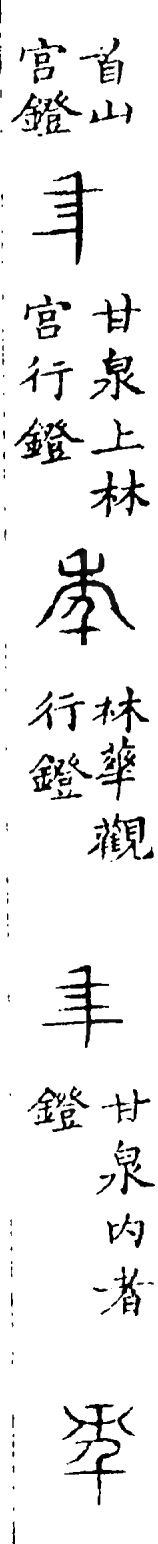 首山
宫鐙
年
甘泉上林
宫行鐙
年
林華觀
行鐙
年
甘泉内者
鐙
年